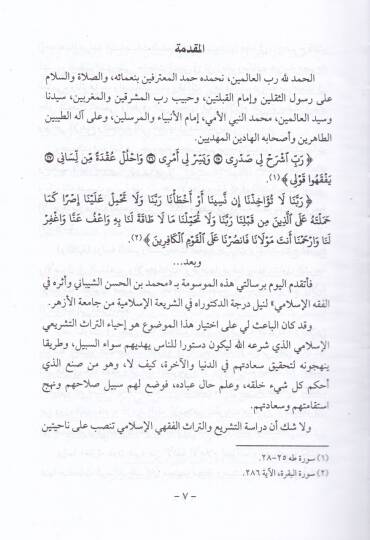 المقدمة
الحمد لله رب العالمين، نحمده حمد المعترفين بنعمائه، والصلاة والسلام
على رسول الثقلين وإمام القبلتين، وحبيب رب المشرقين والمغربين، سيدنا
وسيد العالمين، محمد النبي الأمي، إمام الأنبياء والمرسلين، وعلى آله الطيبين
الطاهرين وأصحابه الهادين المهديين.
﴿ رَبِّ اشْرَحْ لِي صَدْرِي ۝٢٥ وَيَسِّرْ لِي أَمْرِي ۝٢٦ وَاحْلُلْ عُقْدَةً مِّن لِّسَانِي ۝٢٧
يَفْقَهُوا قَوْلِي ﴾(١).
﴿ رَبَّنَا لَا تُؤَاخِذْنَا إِن نَّسِينَا أَوْ أَخْطَأْنَا رَبَّنَا وَلَا تَحْمِلْ عَلَيْنَا إِصْرًا كَمَا
حَمَلْتَهُ عَلَى الَّذِينَ مِن قَبْلِنَا رَبَّنَا وَلَا تُحَمِّلْنَا مَا لَا طَاقَةَ لَنَا بِهِ وَاعْفُ عَنَّا وَاغْفِرْ
لَنَا وَارْحَمْنَا أَنتَ مَوْلَانَا فَانصُرْنَا عَلَى الْقَوْمِ الْكَافِرِينَ ﴾(٢).
وبعد...
فأتقدم اليوم برسالتي هذه الموسومة بـ «محمد بن الحسن الشيباني وأثره في
الفقه الإسلامي» لنيل درجة الدكتوراه في الشريعة الإسلامية من جامعة الأزهر.
وقد كان الباعث لي على اختيار هذا الموضوع هو إحياء التراث التشريعي
الإسلامي الذي شرعه الله ليكون دستورا للناس يهديهم سواء السبيل، وطريقا
ينهجونه لتحقيق سعادتهم في الدنيا والآخرة، كيف لا، وهو من صنع الذي
أحكم كل شيء خلقه، وعلم حال عباده، فوضع لهم سبيل صلاحهم ونهج
استقامتهم وسعادتهم.
ولا شك أن دراسة التشريع والتراث الفقهي الإسلامي تنصب على ناحيتين
(١) سورة طه ٢٥-٢٨.
(٢) سورة البقرة، الآية ٢٨٦.
- ٧ -